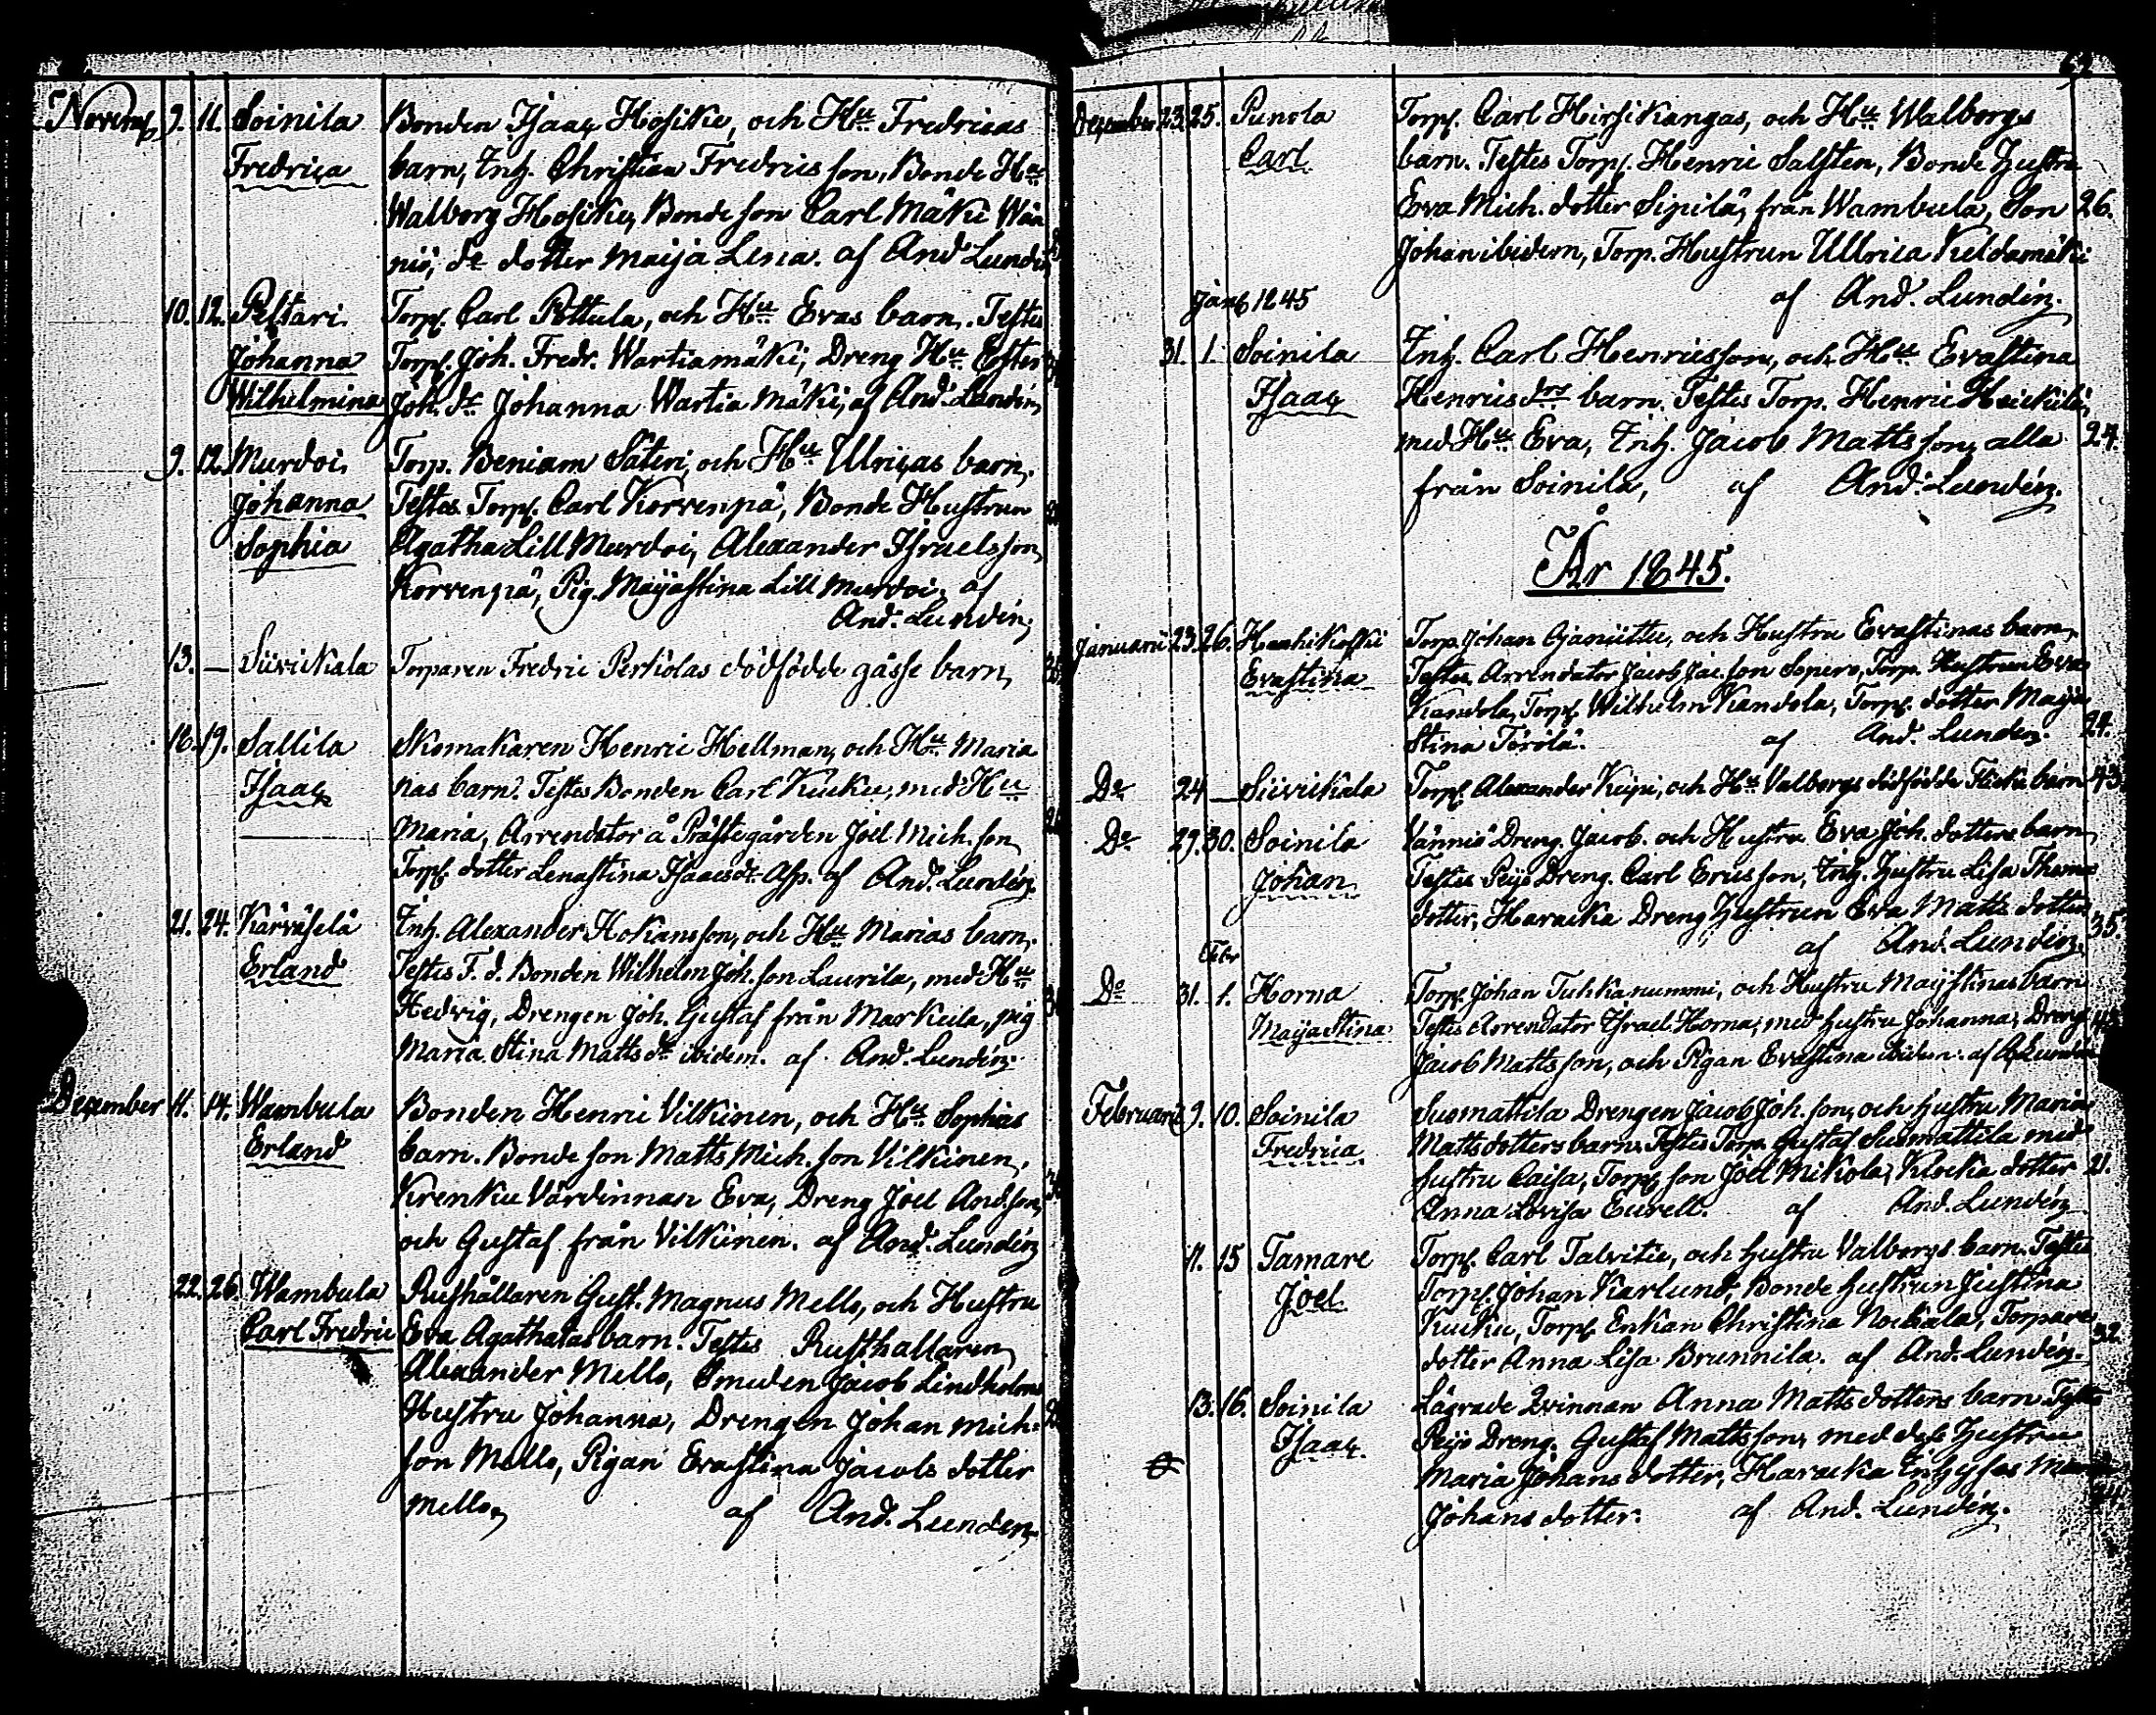 Novemb 9. 11. Soinila Bonden Isaac Hosike, och Hu Fredricas
Fredrica barn, Inh. Christian Fredricsson, Bonde Hu
Walborg Hosike, Bonde son Carl Mäki Wän
niö, dr dotter Maija Lena. af And Lundén
10. 12. Peltari Torp. Carl Pottula, och Hu Evas barn. Testes
Johanna Torp. Joh. Fredr. Wartiamäki, Dreng Hu Ester
Wilhelmina Joh. dr Johanna Wartia mäki, af And. Lundén
9. 12. Murdoi Torp. Beniam Säteri, och Hu Ulricas barn.
Johanna Testes Torp. Carl Korvenpä, Bonde Hustrun
Sophia Agatha Lill Murdoi, Alexander Israelsson
Korvenpä, Pig. Maijastina Lill Murdoi, af
And. Lundén
13. — Siivickala Torparen Fredric Pertiolas dödfödde gåsse barn,
18. 19. Sallila Skomakaren Henric Hellman, och Hu Maria
Isaac nas barn. Testes Bonden Carl Kucku, med Hu
Maria, Arrendator å Prästegården Joel Mich. son
Torp. dotter Lenastina Isaacsdr Asp. af And. Lundén
21. 24. Kärväselä Inh. Alexander Hokansson, och Hu Marias barn.
Erland Testes F. d. Bonden Wilhelm Joh. son Laurila, med Hu
Hedvig, Drengen Joh. Gustaf från Markula, pig
Maria Stina Matts dr ibidem. af And. Lundén
December 11. 14. Wambula Bonden Henric Vilkünen, och Hu Sophias
Erland barn. Bonde son Matts Mich. son Vilkinen,
Krenku Värdinnan Eva, Dreng Joel And. son,
och Gustaf från Vilkünen. af And. Lundén
22. 26. Wambula Rusthållaren Gust. Magnus Mello, och Hustru
Carl Fredric Eva Agathatas barn. Testes Rusthallaren
Alexander Mello, Smeden Jacob Lindholms
Hustru Johanna, Drengen Johan Mich:
son Mello, Pigan Evastina Jacobs dotter
Mello, af And. Lunden
December 23. 25. Punola Torp. Carl Hirsikangas, och Hu Walborgs
Carl barn. Testes Torp. Henric Salsten, Bonde Hustru
Eva Mich. dotter Sipilä, från Wambula, Son 26.
Johan ibidem, Torp. Hustrun Ullrica Keldamäki
Jan 1845 af And. Lundén.
31. 1. Soinila Inh. Carl Henricsson, och Hu Evastina
Isaac Henrics drs barn. Testes Torp. Henric Heickilä,
med Hu Eva, Inh. Jacob Mattsson, alla 24.
från Soinila, af And. Lundén.
År 1845.
Januarii 23. 26. Torp. Johan Ojaniittu, och Hustru Evastinas barn,
Evastina Testes Arrendator Jacob Jac. son Sopero, Torp. Hustrun Eva
Kandola, Torp. Wilhelm Kandola, Torp. dotter Maija
Stina Törölä. af And. Lundén. 24.
Do 24 — Siivickala Torp. Alexander Keipi, och Hu Valborgs dödfödde Flicke barn 43.
Do 29. 30. Soinila Vänniö Dreng. Jacob. och Hustru Eva Joh. dotters barn,
Johan Testes Peijo Dreng. Carl Ericsson, Inh. Hustru Lisa Thomas
dotter, Haracka Dreng Hustrun Eva Matts dotter 35.
Febr af And. Lundén
Do 31. 1. Horna Torp. Johan Tuhkanummi, och Hustru Maijstinas barn
Maija Stina Testes Arrendator Israel Horna, med hustru Johanna, Dreng
Jacob Mattsson, och Pigan Evastina ibidem. af A. Lundén
Februarii 9. 10. Soinila Suomattila Drengen Jacob Joh. son, och hustru Maria
Fredrica Matts dotters barn. Testes Torp. Gustaf Suomattila med
hustru Caisa, Torp. son Joel Mikola, Klocka dotter 21.
Anna Lovisa Eurell. af And. Lundén
11. 15 Tamare Torp. Carl Talvitie, och hustru Valborgs barn. Testes
Joel Torp. Johan Karlund, Bonde hustrun Justina
Kucku, Torp. Enkan Christina Nockala, Torpare 32.
dotter Anna Lisa Brunnila. af And. Lundén.
13. 16. Soinila Lägrade Qvinnan Anna Matts dotters barn Testes
Isaac Peijo Dreng. Gustaf Mattsson, med dess Hustru
Maria Johans dotter, Haracka Inhyses
Johans dotter. af And. Lundén.